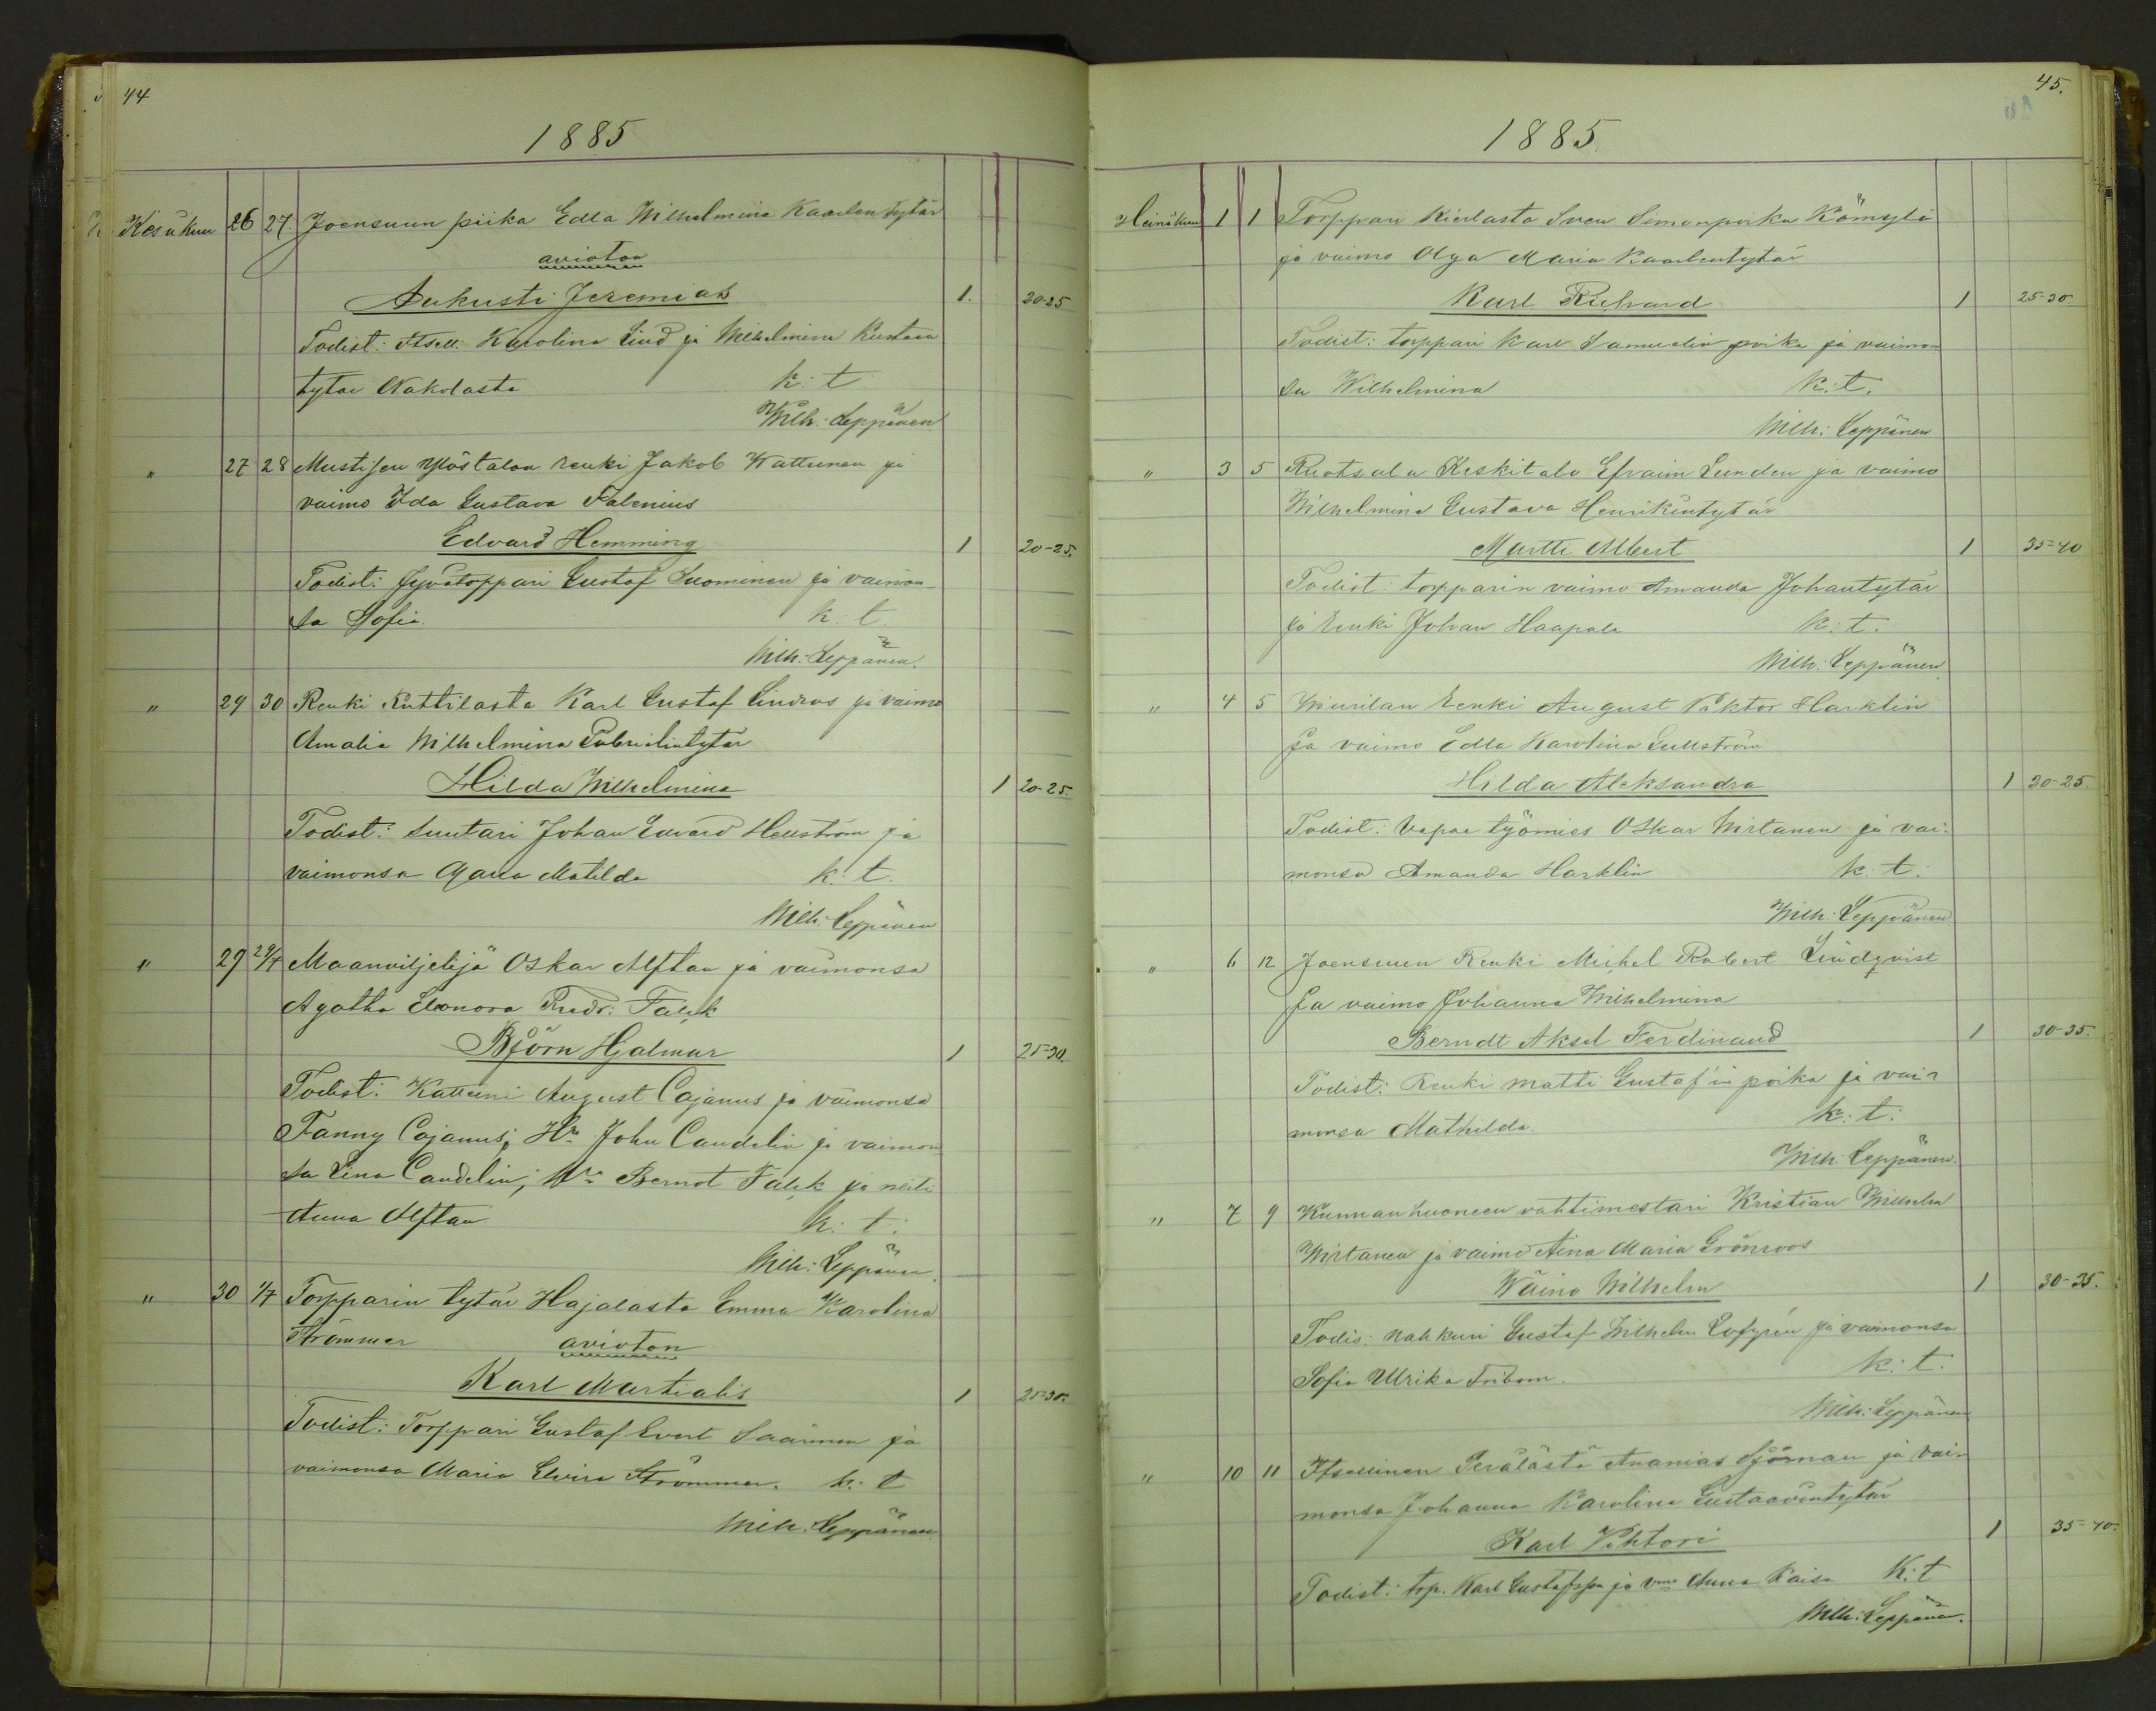 44
1885
Kesäkuu 26 27. Joensuun piika Edla Wilhelmina Kaarlentytär
avioton
Aukusti Jeremias 1. 20-25
Todist: Itsell. Karolina Lind ja Wilhelmina Kustaan
tytär Nakolasta k: t
Wilh: Leppänen
" 27 28 Mustisen Ylöstalon renki Jakob Kattunen ja
vaimo Ida Gustava Falenius
Edvard Hemming 1 20-25.
Todist: Jyvätorppari Gustaf Suominen ja vaimon
sa Sofia k: t.
Wilh: Leppänen.
" 29 30 Renki Kuttilasta Karl Gustaf Lindros ja vaimo
Amalia Wilhelmina Gabrielintytär
Hilda Wilhelmina 1 20-25.
Todist: Suutari Johan Edvard Hellström ja
vaimonsa Maria Matilda k: t.
Wilh: Leppänen
" 29 29/7 Maanviljelijä Oskar Alftan ja vaimonsa
Agatha Eleonora Falck
Björn Hjalmar 1 25-30
Todist: August Cajanus ja vaimonsa
Fanny Cajanus; Hr John Candelin ja vaimon
sa Lina Candelin; Hr Berndt Falck ja neiti
Anna Alftan k: t:
Wilh: Leppänen.
" 30 1/7 Torpparin tytär Hajalasta Emma Karolina
Strömmer avioton
Karl Martialis 1 25-30.
Todist: Torppari Gustaf Evert Saarinen ja
vaimonsa Maria Elvira Strömmer. k: t
Wilh: Leppänen
45.
1885.
Heinäkuu 1 1 Torppari Sven Simonpoika Kömylä
ja vaimo Olga Maria Kaarlentytär
Karl Richard 1 25-30.
Todist: torppari Karl Samuelin poika ja vaimon
sa Wilhelmina k: t.
Wilh: Leppänen
" 3 5 Ruotsula Keskitalo Efraim Lunden ja vaimo
Wilhelmina Gustava Henrikintytär
Martti Albert 1 35-40
Todist: torpparin vaimo Amanda Johantytär
ja renki Johan Haapala k: t.
Wilh: Leppänen.
" 4 5 renki August Viktor Harklin
ja vaimo Edla Karolina Gullström
Hilda Aleksandra 1 20-25.
Todist: Vapaa työmies Oskar Wirtanen ja vai-
monsa Amanda Harklin k: t:
Wilh: Leppänen
" 6 12 Joensuun Renki Mickel Robert Lindqvist
ja vaimo Johanna Wilhelmina
Berndt Aksel Ferdinand 1 30-35.
Todist: Renki Matti Gustaf'in poika ja vai-
monsa Mathilda. k: t:
Wilh: Leppänen.
" 7 9 Kunnanhuoneen vahtimestari Kristian Wilhelm
Wirtanen ja vaimo Aina Maria Grönroos
Wäino Wilhelm 1 30-35.
Todis: nahkuri Gustaf Wilhelm Lofgrén ja vaimonsa
Sofia Ulrika Fribom. k: t.
Wilh: Leppänen
" 10 11 Itsellinen Perälästä Ananias Sjöman ja vai-
monsa Johanna Karolina Gustaavintytär
Karl Vihtori 1 35-40.
Todist: trp. Karl Gustafsson ja vmo Anna Kaisa K: t
Wilh: Leppänen.